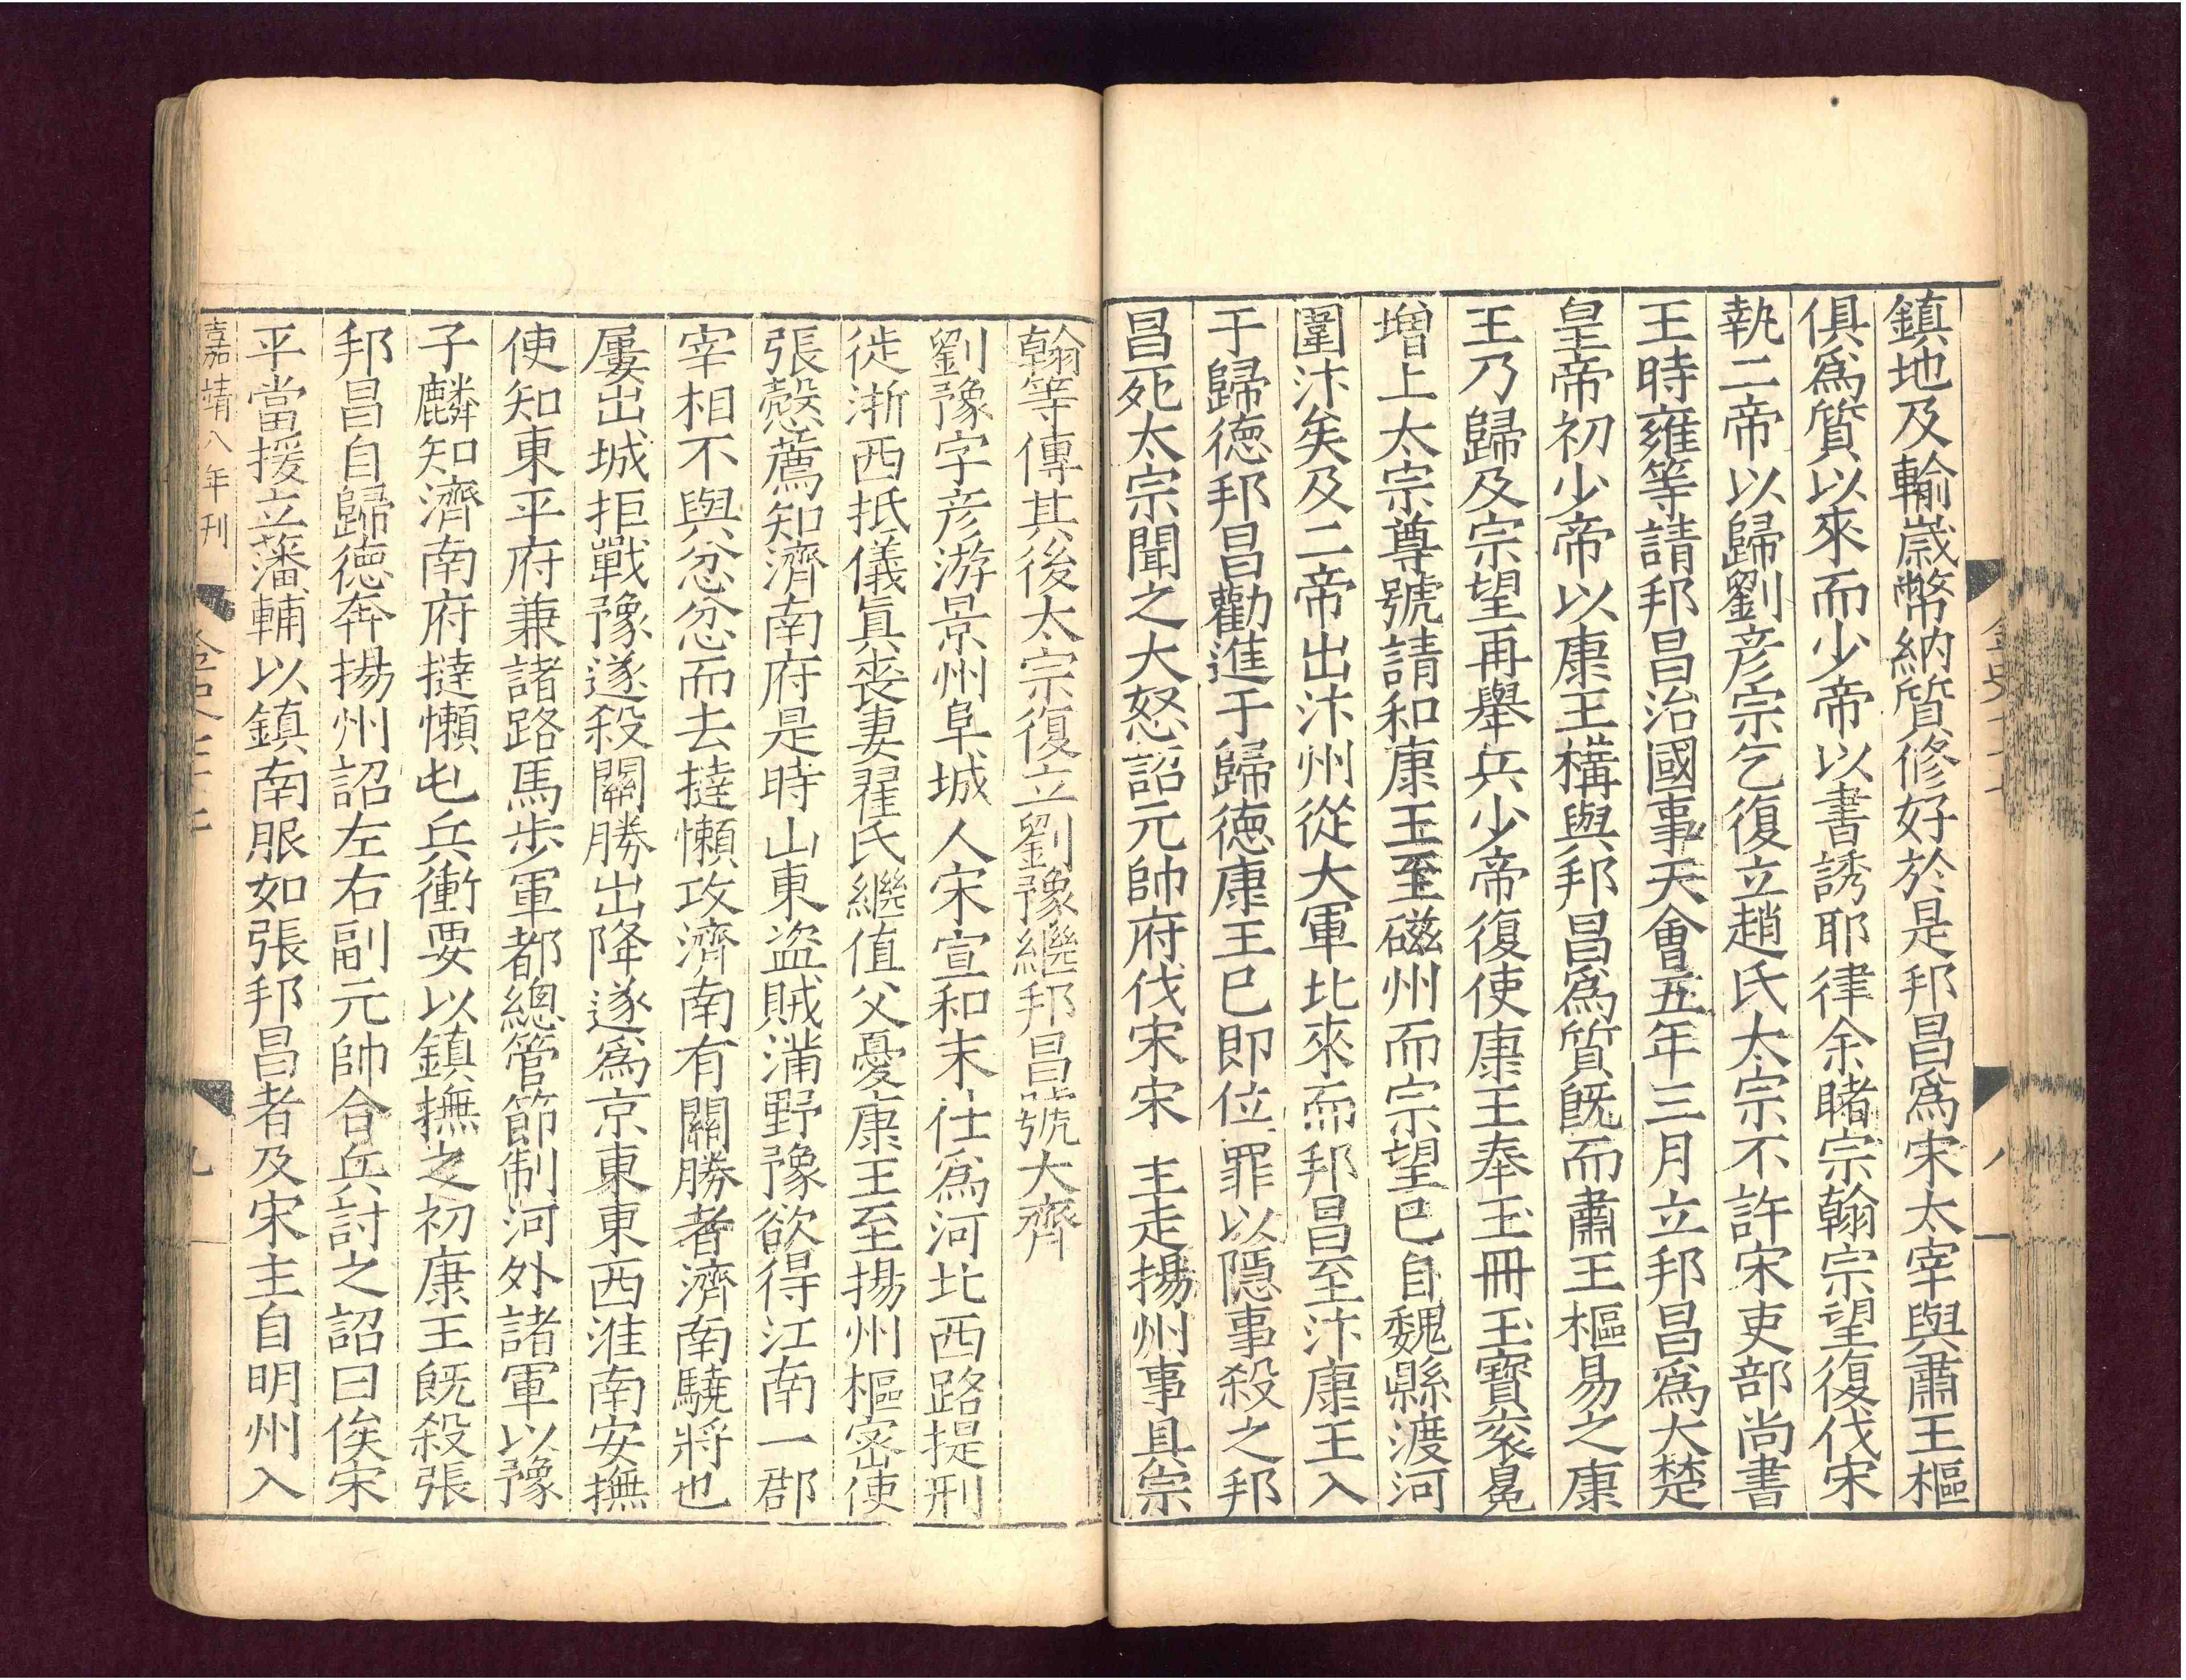 鎮地及輸歲幣納質修好於是邦昌爲宋太宰與肅王樞
俱爲質以來而少帝以書誘耶律余睹宗翰宗望復伐宋
執二帝以歸劉彥宗乞復立趙氏太宗不許宋吏部尚書
王時雍等請邦昌治國事天會五年三月立邦昌爲大楚
皇帝初少帝以康王構與邦昌爲質旣而肅王樞易之康
王乃歸及宗望再舉兵少帝復使康王奉玉冊玉寶袞冕
增上太宗尊號請和康王至磁州而宗望已自魏縣渡河
圍汴矣及二帝出汴州從大軍北來而邦昌至汴康王入
于歸德邦昌勸進于歸德康王已即位罪以隱事殺之邦
昌死太宗聞之大怒詔元帥府伐宋宋 主走揚州事具宗
翰等傳其後太宗復立劉豫繼邦昌號大齊
劉豫字彥游景州阜城人宋宣和末仕爲河北西路提刑
徙浙西抵儀眞喪妻翟氏繼值父憂康王至揚州樞密使
張慤薦知濟南府是時山東盜賊滿野豫欲得江南一郡
宰相不與忿忿而去撻懶攻濟南有關勝者濟南驍將也
屢出城拒戰豫遂殺關勝出降遂爲京東東西淮南安撫
使知東平府兼諸路馬步軍都總管節制河外諸軍以豫
子麟知濟南府撻懶屯兵衝要以鎮撫之初康王旣殺張
邦昌自歸德奔揚州詔左右副元帥合兵討之詔曰俟宋
平當援立藩輔以鎮南服如張邦昌者及宋主自明州入
嘉靖八年刊
九